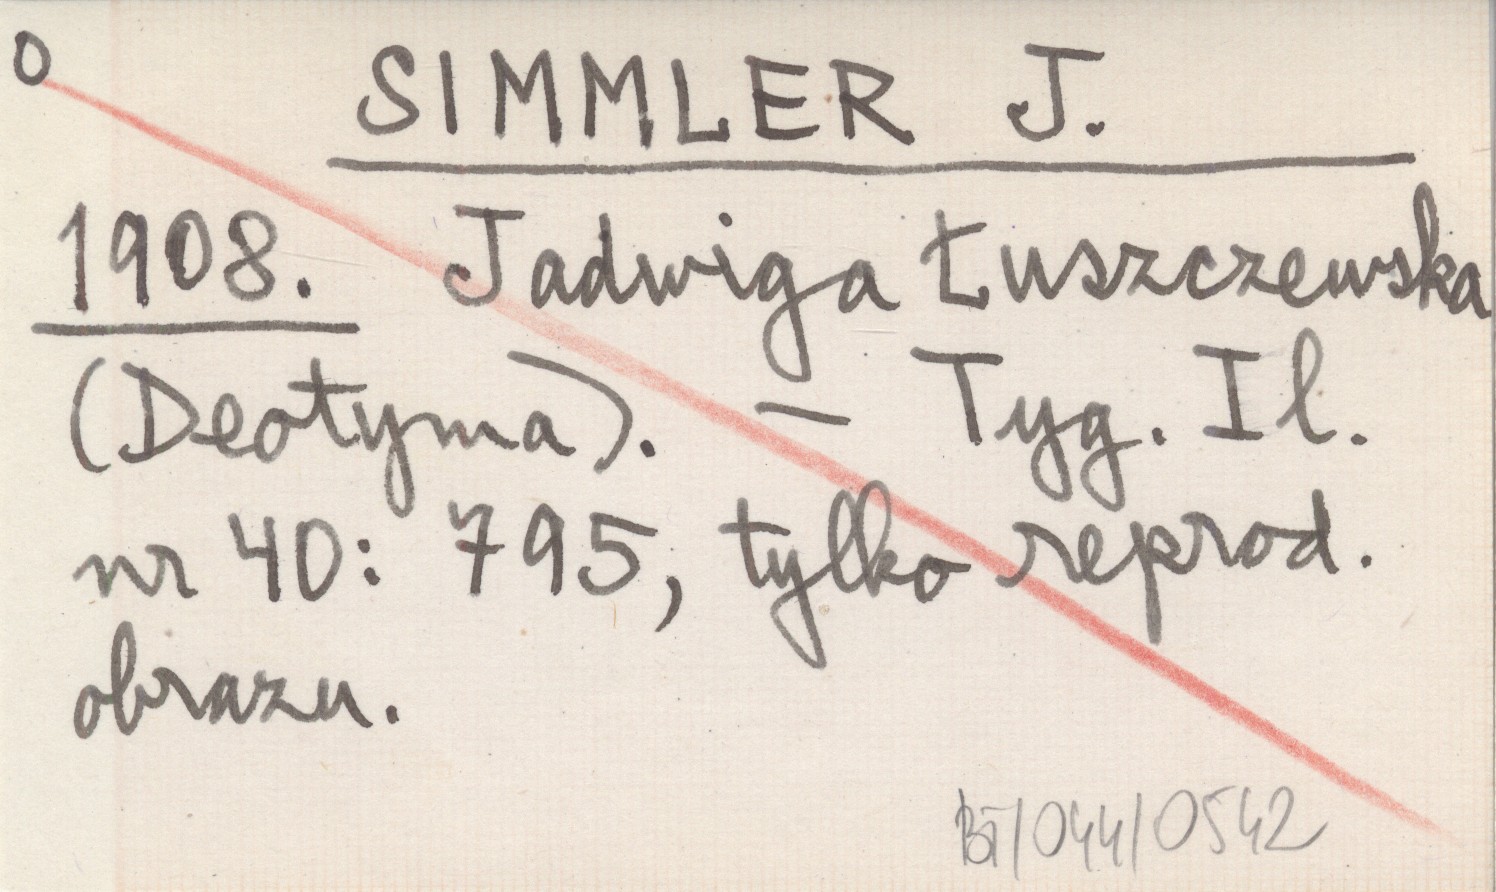 O
SIMMLER J.
1908. Jadwiga Łuszczewska
(Deotyma). — Tyg. Il.
nr 40: 795, tylko reprod.
obrazu.
/044/0542